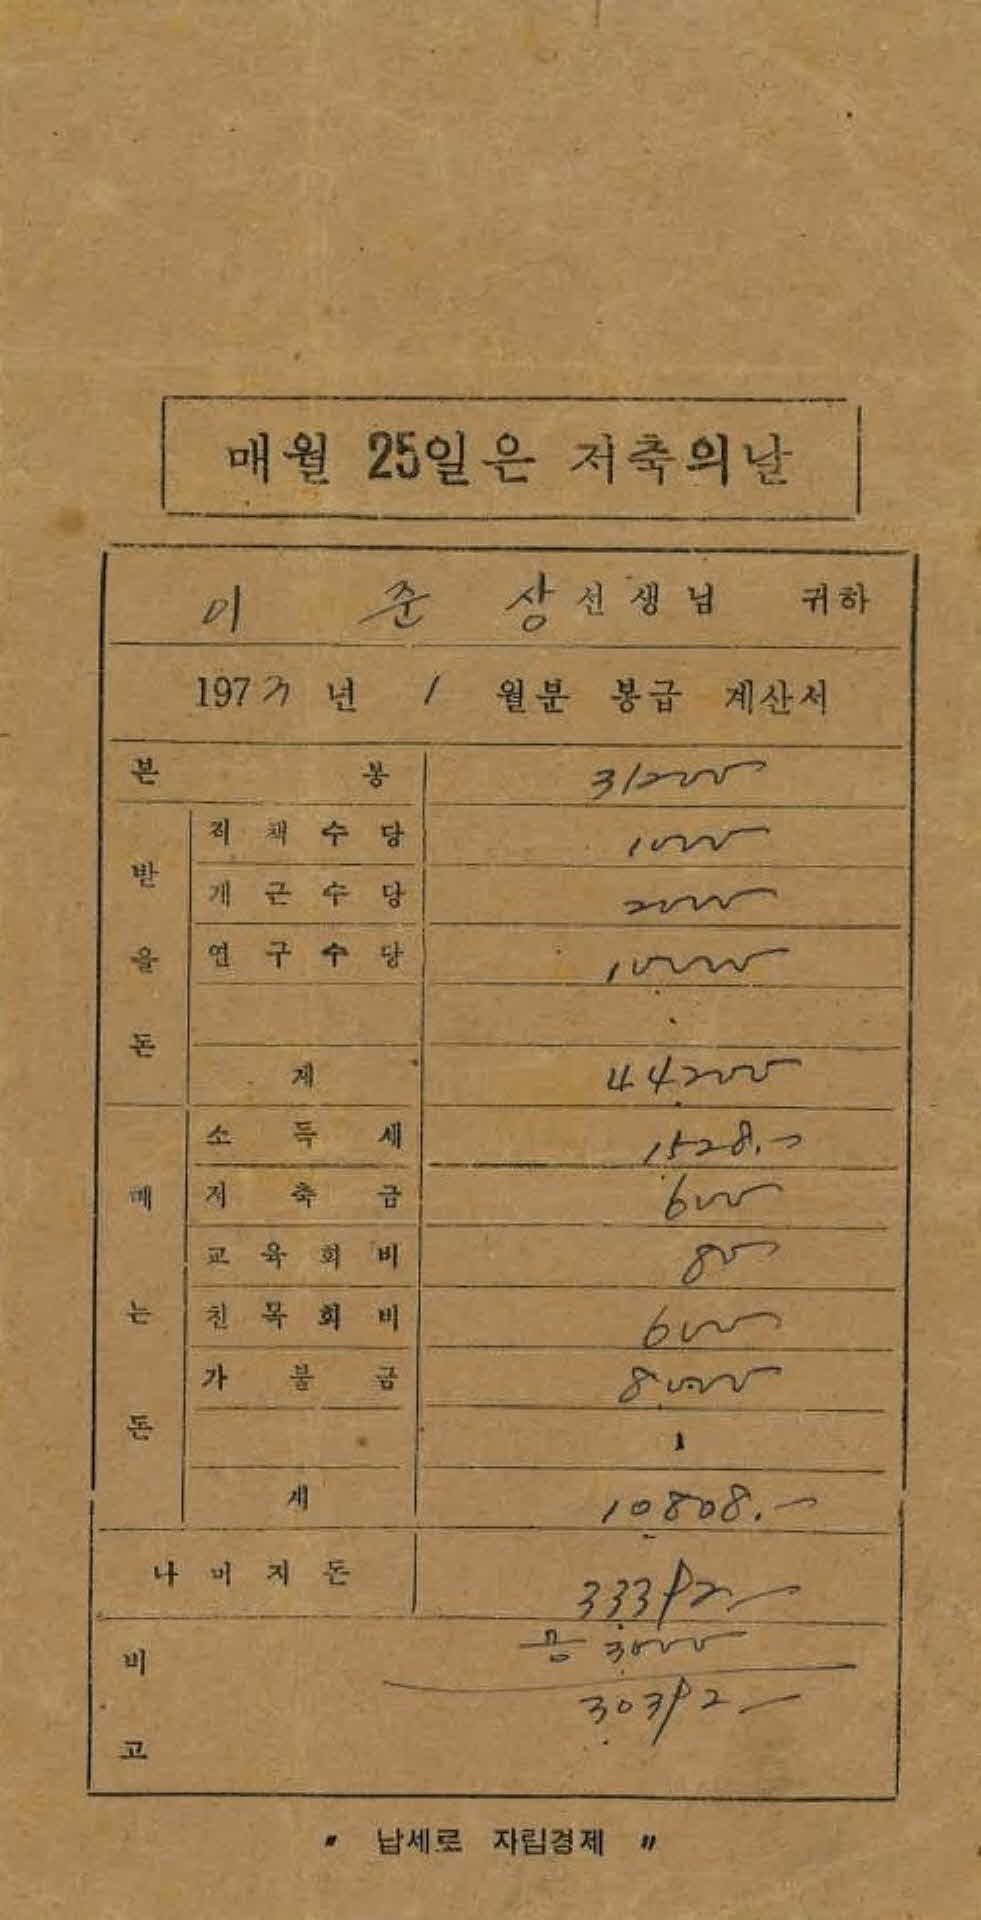 매월 25일은 저축의날
이 준 상 선생님 귀하
197 년 1 월분 봉급 계산서
본 봉 31200
받을돈
직책수당 1000
개근수당 2000
연구수당 10000
계 44200
떼는돈
소득세 1528.-
저축금 600
교육회비 80
친목회비 600
가불금 8000
계 10808.-
나머지돈 33392.-
비고
3000
30392.-
〃 납세로 자립경제 〃